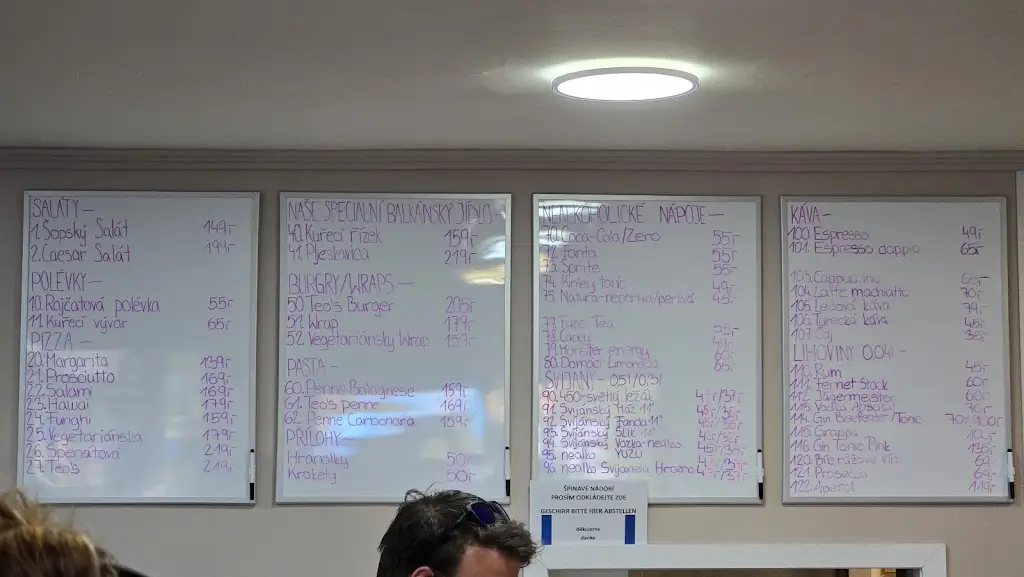 SALÁTY-
1. Šopský Salát 149,-
2. Caesar Salát 194,-
POLÉVKY-
10. Rajčatová polévka 55,-
11. Kuřecí vývar 65,-
PIZZA-
20. Margarita 139,-
21. Prošciutto 169,-
22. Salami 169,-
23. Hawai 179,-
24. Funghi 159,-
25. Vegetariánska 179,-
26. Špenátová 219,-
27. Teo's 219,-
NAŠE SPECIALNÍ BALKÁNSKÝ JÍDLO-
40. Kuřecí řízek 159,-
41. Pljeskavica 219,-
BURGRY/WRAPS-
50 Teo's Burger 205,-
51. Wrap 179,-
52. Vegetariánsky Wrap 159,-
PASTA-
60. Penne Bolognese 159,-
61. Teo's penne 169,-
62. Penne Carbonara 159,-
PŘÍLOHY-
Hranolky 50,-
Krokety 50,-
NEALKOHOLICKÉ NÁPOJE-
70. Coca-Cola/Zero 55,-
72. Fanta 55,-
73. Sprite 55,-
74. Kinley tonic 49,-
75. Natura-neperlivá/perlivá 45,-
77. Fuze Tea 55,-
78. Cappy
79. Monster energy
80. Domácí Limonáda
SVIJANY- 0,5l/0,3l
90. 450-světlý ležák
91. Svijanský Máz 11°
92. Svijanský Fanda 11°
93. Svijanský
94. Svijanský Vozka-nealko
95. nealko YUZU
96. nealko Svijanela Hrozno
KÁVA-
100. Espresso 49,-
101. Espresso doppio 65,-
103. Cappuccino 65,-
104. Latte machiatto 70,-
105. Ledová káva 79,-
106. Turecká káva 45,-
107. Čaj
LIHOVINY 0,04l-
110. Rum 45,-
111. Fernet Stock 60,-
112. Jägermeister 60,-
113. Vodka Absolut
114. Gin Beefeater/Tonic
115. Grappa
116. Gin Tonic Pink
120. Bílé/růžové víno
121. Prosecco
122. Aperol 119,-
ŠPINAVÉ NÁDOBÍ
PROSÍM ODKLÁDEJTE ZDE
GESCHIRR BITTE HIER ABSTELLEN
děkujeme
danke